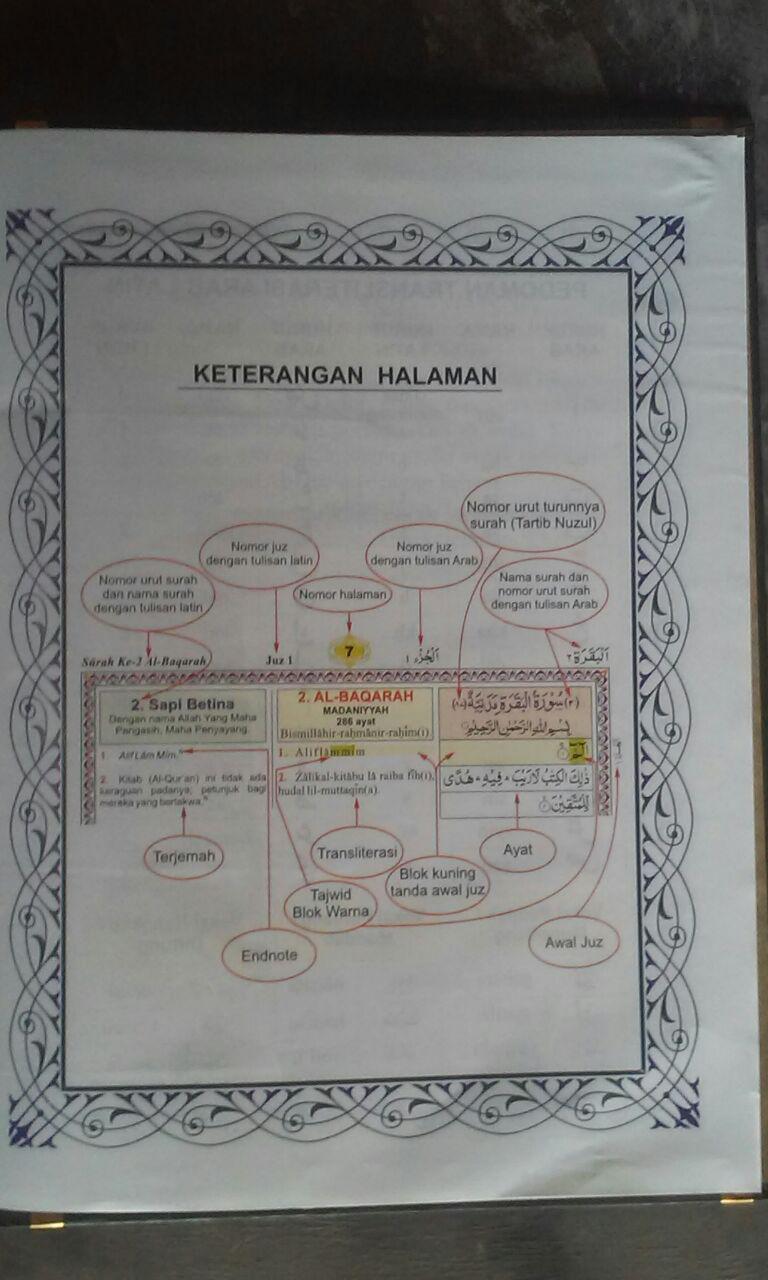 KETERANGAN HALAMAN
Nomor urut turunnya
surah (Tartib Nuzul)
Nomor juz
dengan tulisan latin
Nomor juz
dengan tulisan Arab
Nomor urut surah
dan nama surah
dengan tulisan latin
Nomor halaman
Nama surah dan
nomor urut surah
dengan tulisan Arab
Sūrah Ke-2 Al-Baqarah
Juz 1
7
اَلْجُزْء ١
اَلْبَقَرَة ٢
2. Sapi Betina
Dengan nama Allah Yang Maha
Pangasih, Maha Penyayang.
1. Alif Lām Mīm.
2. Kitab (Al-Qur'an) ini tidak ada
keraguan padanya; petunjuk bagi
mereka yang bertakwa.
2. AL-BAQARAH
MADANIYYAH
286 ayat
Bismillāhir-raḥmānir-raḥīm(i).
1. Alif lām mīm
2. Żālikal-kitābu lā raiba fīh(i),
hudal lil-muttaqīn(a).
(٢) سُوْرَةُ الْبَقَرَةِ مَدَنِيَّةٌ
بِسْمِ اللهِ الرَّحْمٰنِ الرَّحِيْمِ
الۤمّۤ ١
ذٰلِكَ الْكِتٰبُ لَا رَيْبَ ۛ فِيْهِ ۛ هُدًى
لِّلْمُتَّقِيْنَ ٢
Terjemah
Transliterasi
Ayat
Blok kuning
tanda awal juz
Tajwid
Blok Warna
Endnote
Awal Juz